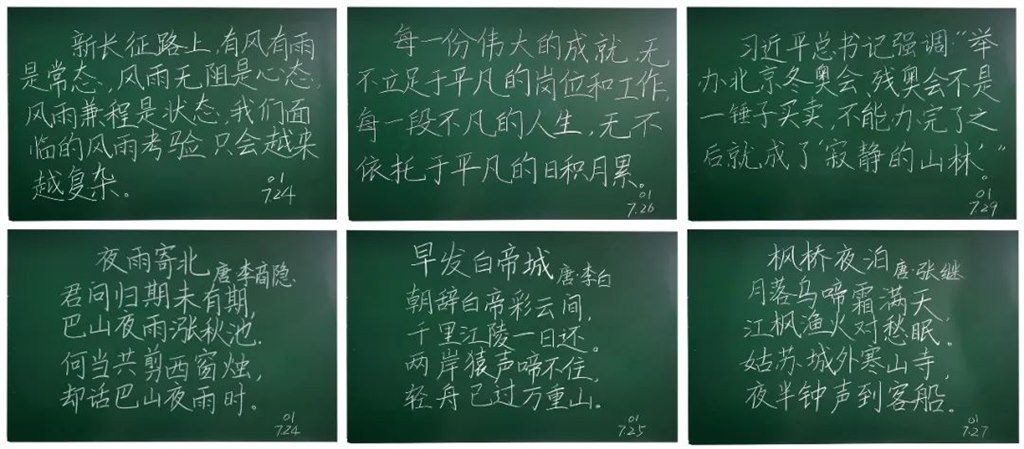 新长征路上,有风有雨
是常态,风雨无阻是心态,
风雨兼程是状态,我们面
临的风雨考验只会越来
越复杂。
01
7.24
每一份伟大的成就,无
不立足于平凡的岗位和工作,
每一段不凡的人生,无不
依托于平凡的日积月累。
01
7.26
习近平总书记强调:“举
办北京冬奥会,残奥会不是
一锤子买卖,不能办完了之
后就成了‘寂静的山林’”。
01
7.29
夜雨寄北 唐·李商隐
君问归期未有期,
巴山夜雨涨秋池。
何当共剪西窗烛,
却话巴山夜雨时。
01
7.24
早发白帝城 唐·李白
朝辞白帝彩云间,
千里江陵一日还。
两岸猿声啼不住,
轻舟已过万重山。
01
7.25
枫桥夜泊 唐·张继
月落乌啼霜满天,
江枫渔火对愁眠。
姑苏城外寒山寺,
夜半钟声到客船。
01
7.27